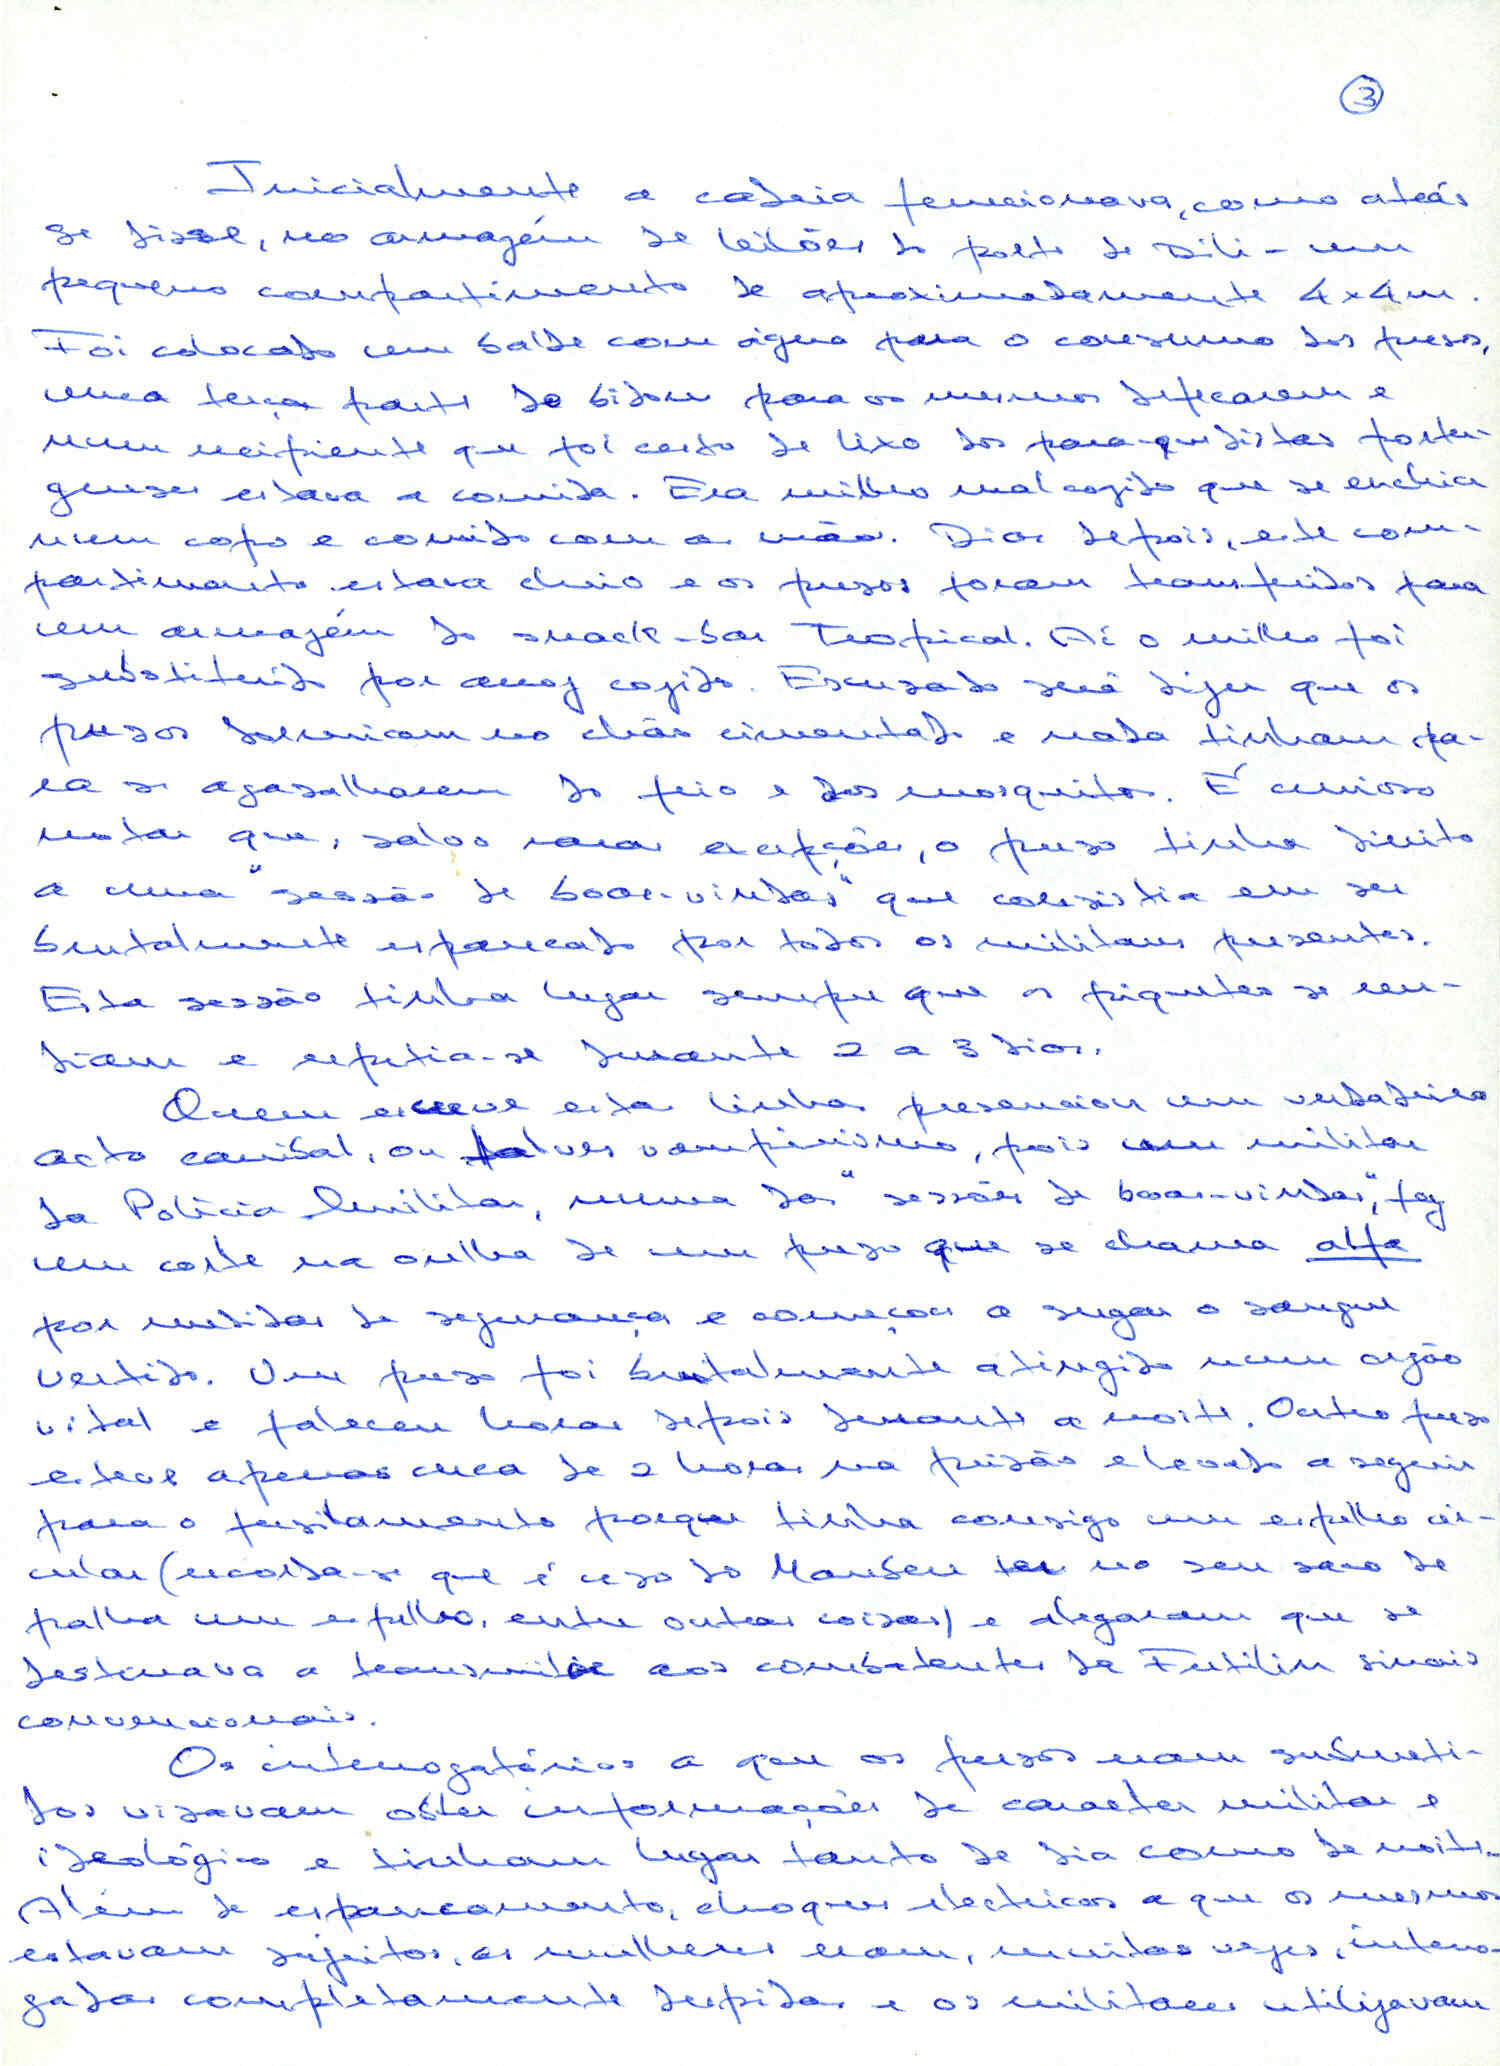 3
Inicialmente a cadeia funcionava, como atrás
se disse, no armazém de leilões do porto de Dili - um
pequeno compartimento de aproximadamente 4x4m.
Foi colocado um balde com água para o consumo dos presos,
uma terça parte do bidom para os mesmos defecarem e
num recipiente que foi cesto de lixo dos para-quedistas portu-
gueses estava a comida. Era milho mal cozido que se enchia
num copo e comido com as mãos. Dias depois, este com-
partimento estava cheio e os presos foram transferidos para
um armazém do snack-bar Tropical. Aí o milho foi
substituido por arroz cozido. Escusado será dizer que os
presos dormiam no chão cimentado e nada tinham pa-
ra se agasalharem do frio e dos mosquitos. É curioso
notar que, salvo raras excepções, o preso tinha direito
a uma "sessão de boas-vindas" que consistia em ser
brutalmente espancado por todos os militares presentes.
Esta sessão tinha lugar sempre que os piquetes se ren-
diam e repetia-se durante 2 a 3 dias.
Quem escreve estas linhas presenciou um verdadeiro
acto canibal, ou talvez vampirismo, pois um militar
da Polícia Militar, numa das "sessões de boas-vindas", fez
um corte na orelha de um preso que se chama alfa
por medidas de segurança e começou a sugar o sangue
vertido. Um preso foi brutalmente atingido num orgão
vital e faleceu horas depois durante a noite. Outro preso
esteve apenas cerca de 2 horas na prisão e levado a seguir
para o fusilamento porque tinha consigo um espelho cir-
cular (recorda-se que é uso do Maubere ter no seu saco de
palha um espelho, entre outras coisas) e alegaram que se
destinava a transmitir aos combatentes da Fretilin sinais
convencionais.
Os interrogatórios a que os presos eram submeti-
dos visavam obter informações de caracter militar e
ideológico e tinham lugar tanto de dia como de noite.
Além de espancamento, choques electricos a que os mesmos
estavam sujeitos, as mulheres eram, muitas vezes, interro-
gadas completamente despidas e os militares utilizavam